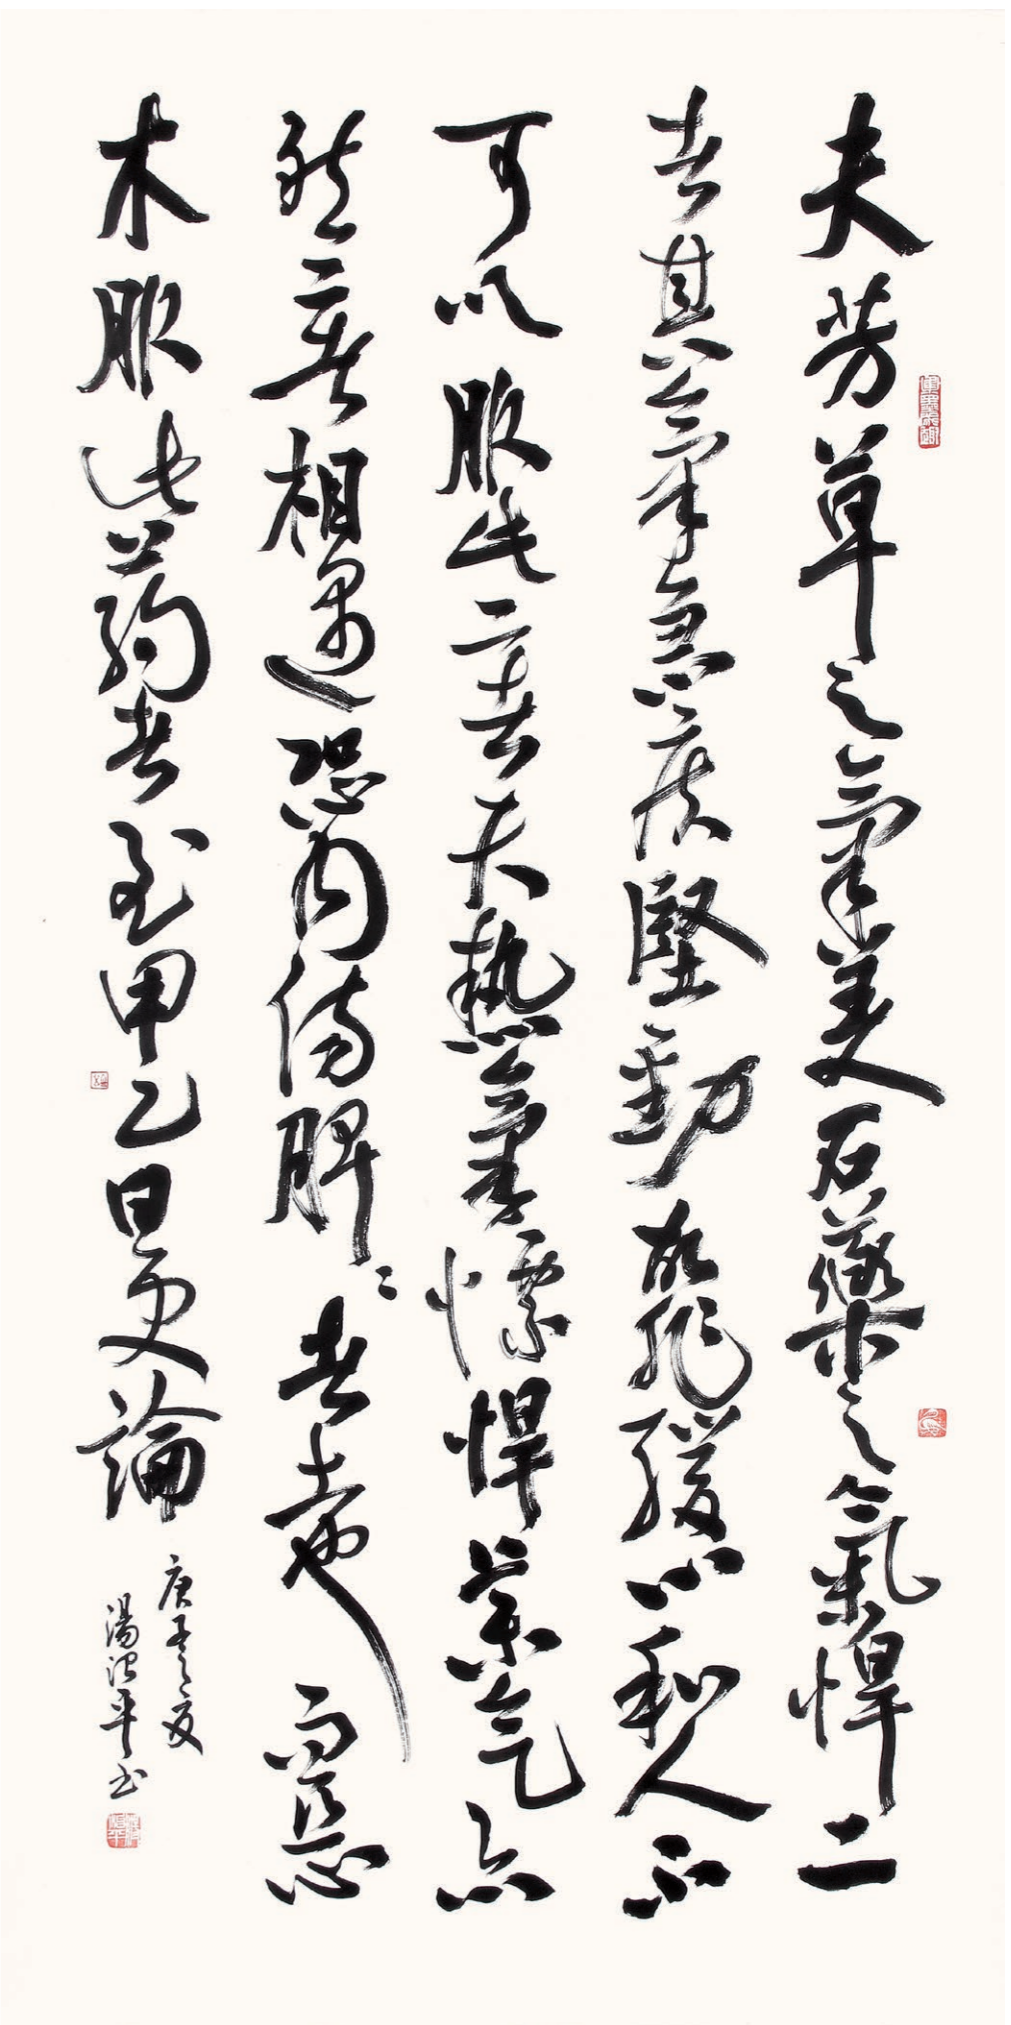 夫芳草之氣美石藥之氣悍二
者其氣急疾堅勁故非緩心和人不
可以服此二者夫熱氣慓悍藥气亦
然二者相遇恐内傷脾〻者土也而惡
木服此药者至甲乙日更論
庚子之夏
湯治平书